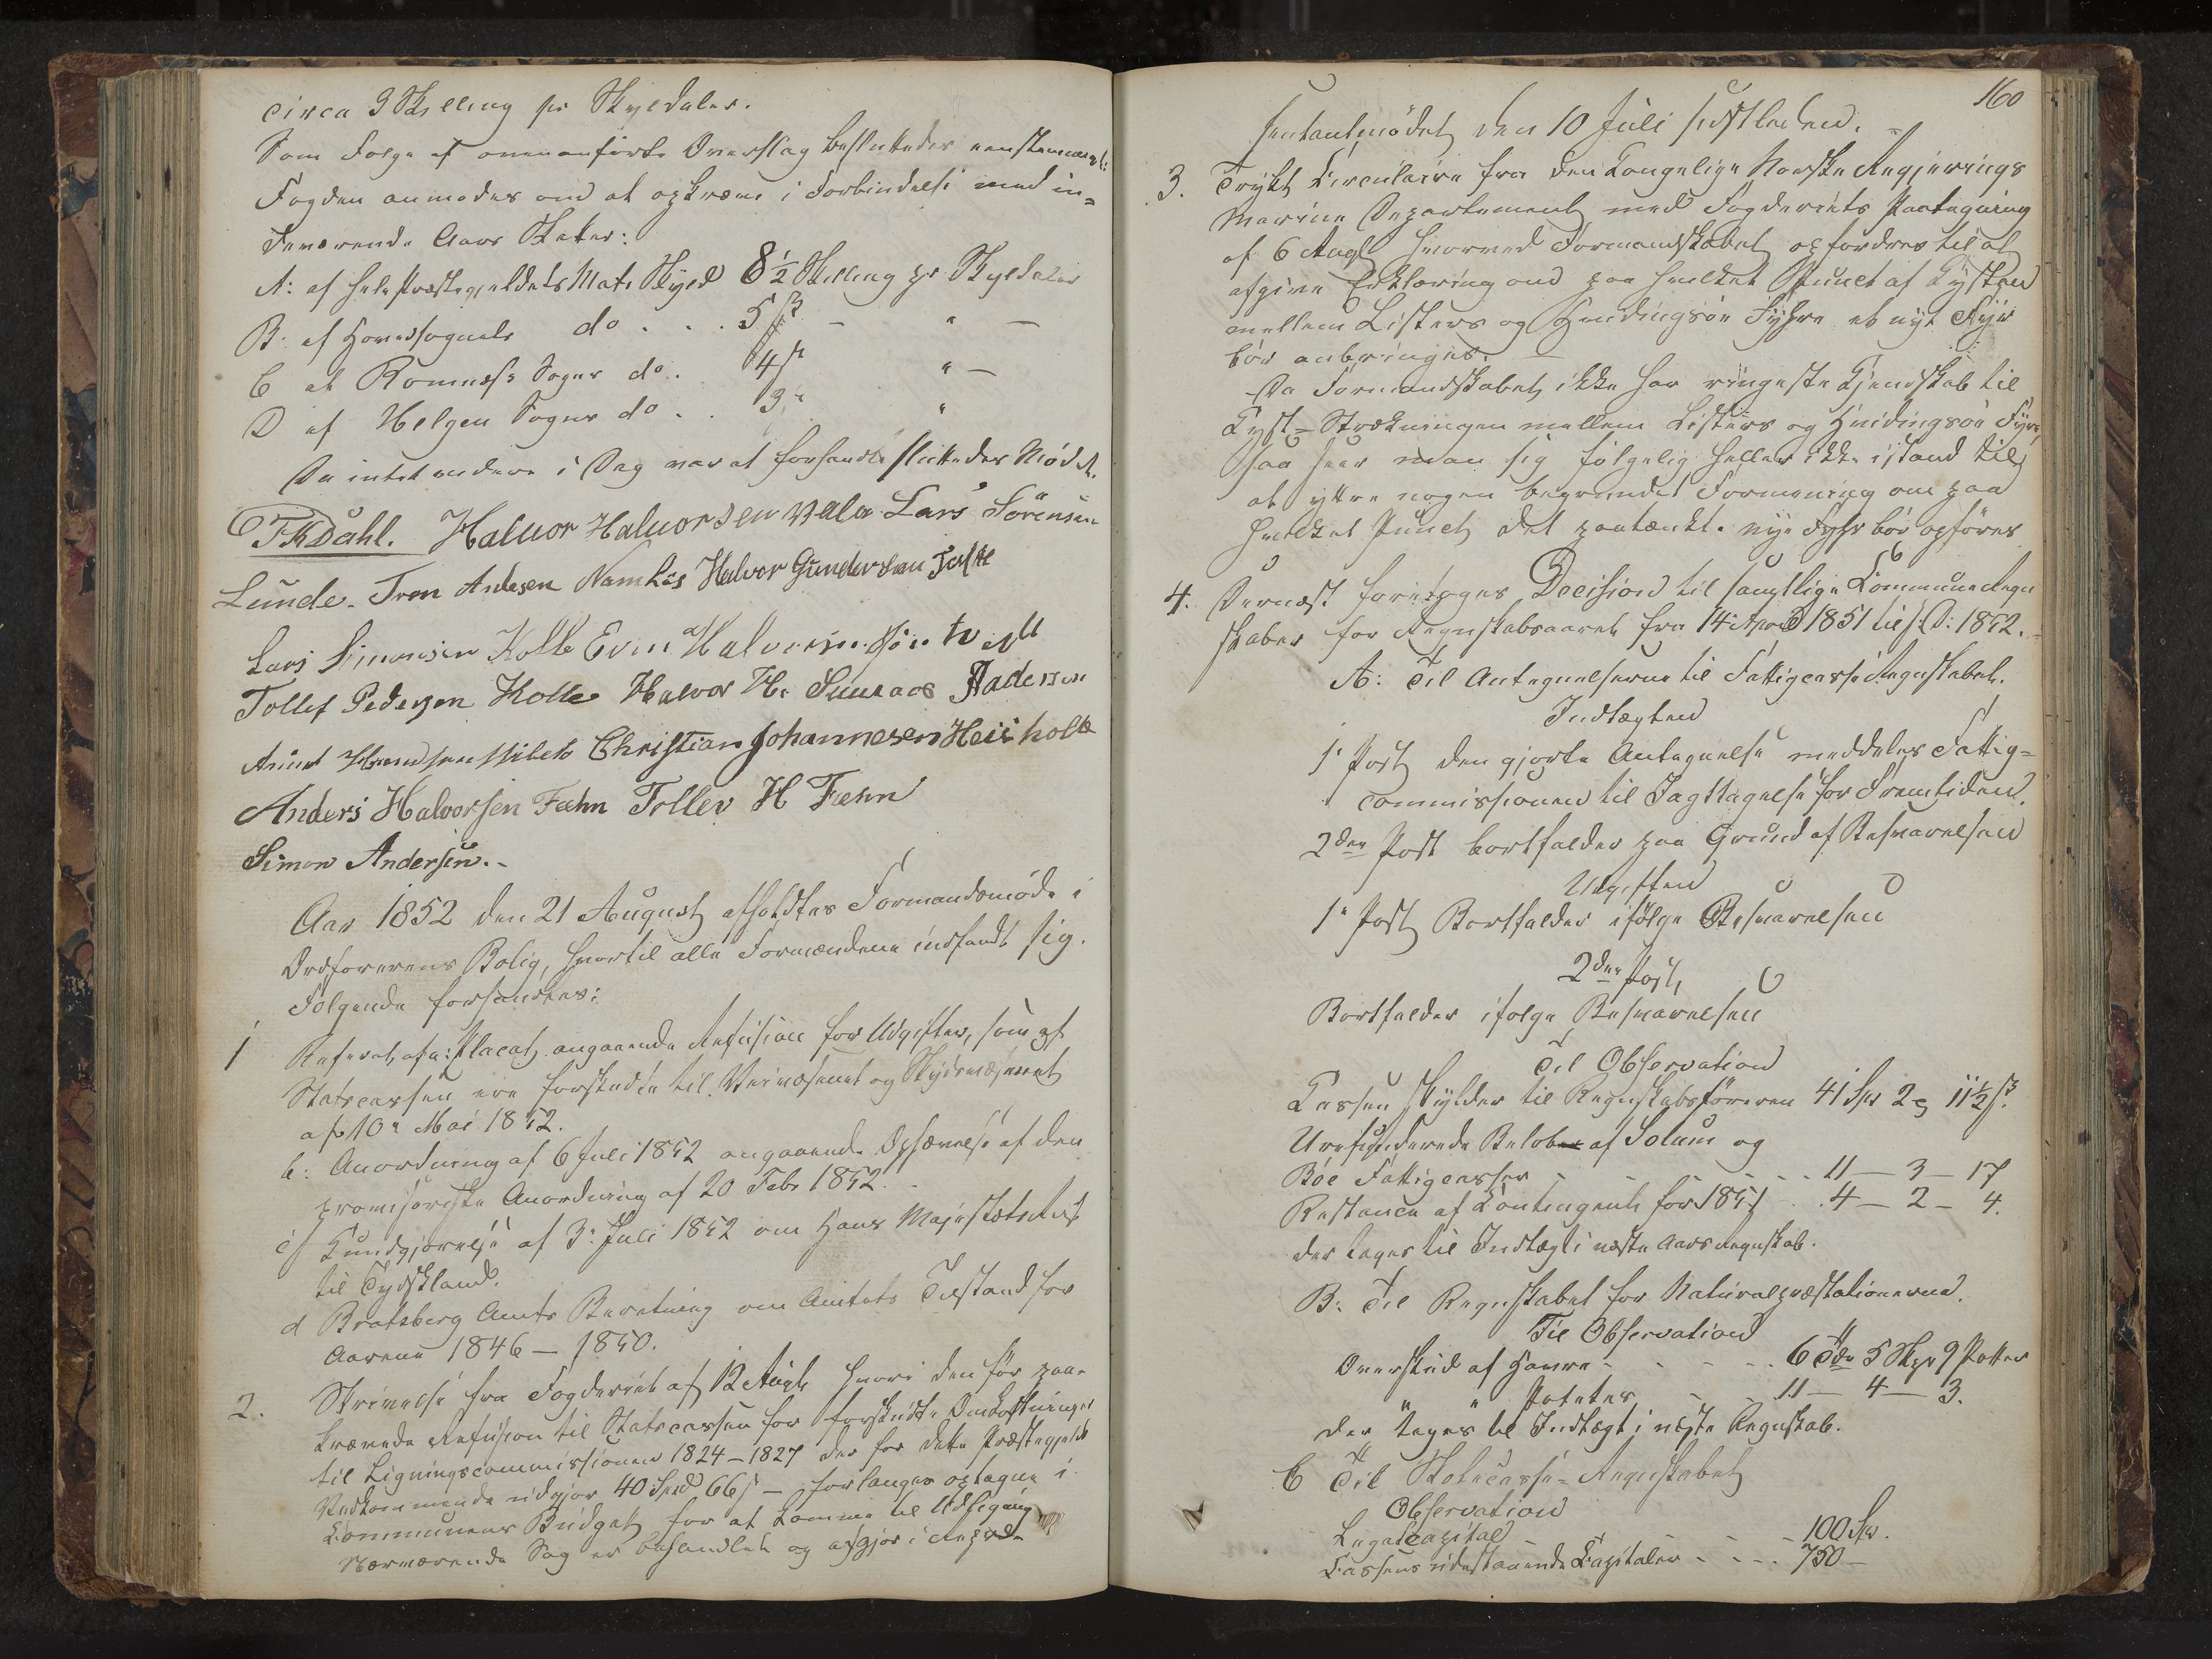 circa 3 Skilling pr Skyldaler.
Som Følge af ovenanførte Overslag besluttedes eenstemmigt:
Fogden anmodes om at opkræve i Forbindelse med in=
deværende Aars Skatter:
A: af hele Præstegjeldets Matr Skyld 8½ Skilling pr Skyldaler
B. af Hovedsognets do . . . 5 ß — " —
C af Romnæss Sogns do . 4 ß " —
D af Helgen Sogns do . . 3 " "
Da intet videre i Dag var at forhandle sluttedes Mødet.
TKDahl. Haluor Haluorsen Vala Lars Sörensen
Lunde. Tron Andesen Namløs Halvor Gundersen
Lars Simonsen Kolle Even Halvorsen
Tollef Pedersen Kolle Halvor H. Anderson
Christian Johannesen Heisholt
Anders Halvorsen Fæhn Tollev H Fæhn
Simon Andersen.-
Aar 1852 den 21 August afholdtes Formandsmøde i
Ordførerens Bolig, hvortil alle Formændene indfandt sig.
Følgende forhandles:
1 Referat af a: Placat angaaende Refusion for Udgifter, som af
Statscassen ere forskudte til Veivæsenet og Skydsvæsenet
af 10de Mai 1852.
b: Anordning af 6 Juli 1852 angaaende Ophævelse af den
provisoriske Anordning af 20 Febr 1852. -
c Kundgjørelse af 3: Juli 1852 om Hans Majestæts Reise
til Tydskland.
d Bratsberg Amts Beretning om Amtets Tilstand for
Aarene 1846 — 1850.
2. Skrivelse fra Fogderiet af 12 Augt hvori den før paa-
krævede Refusion til Statscassen for forskudte Omkostninger
til Ligningscommissionen 1824-1827 der for dette Præstegjelds
Vedkommende udgjør 40 Spd 66 ß — forlanges optagne i
Kommunens Budget for at komme til Udligning
Nærværende Sag er behandlet og afgjor i Repræ-
160
sentantmødet den 10 Juli sidstleden. -
3. Trykt Circulaire fra den Kongelige Norske Regjerings
Marine Departement med Fogderiets Paategning
af 6 Augt hvorved Formandskabet opfordres til at
afgive Erklæring om paa hvilket Punct af Kysten
mellem Listers og Hvidingsøe Fyhre et nyt Fyr
bør anbringes.
Da Formandskabet ikke har ringeste Kjendskab til
Kyst-Strækningen mellem Listers og Hvidingsøe Fyre,
saa seer man sig følgelig heller ikke istand til
at yttre nogen begrundet Formening om paa
hvilket Punct det paatænkte nye Fyhr bør opføres
4. Dernæst foretoges Decision til samtlige Kommune Regn
skaber for Regnskabsaaret fra 14 April 1851 til s: D: 1852.
A: Til Antegnelserne til Fattigcasse Regnskabet.
Indtægten
1' Post den gjorte Antegnelse meddeles Fattig=
commissionen til Iagttagelse for Fremtiden.
2den Post bortfalder paa Grund af Besvarelsen
Udgiften
1' Post Bortfalder ifølge Besvarelsen
2den Post,
Bortfalder ifølge Besvarelsen
Til Observation
Kassen skylder til Regnskabsføreren 41 Spd 2 11½ ß.
Urefunderede Beløb af Solum og
Böe Fattigcasser - - - . . 11 — 3 — 17
Restance af Kontingent for 1851 . . 4 — 2 — 4.
der tages til Indtægt i næste Aars Regnskab.
B: Til Regnskabet for Naturalpræstationerne.
Til Observation
Overskud af Havre - - - - . 6 Tdr 5 Skpr 9 Potter
" " Poteter - - 11 — 4 — 3.
der tages til Indtægt i næste Regnskab.
C Til Skolecasse-Regnskabet
Observation
Legatcapital - - - - - 100 Spd.
Kassens udestaaende Capitaler - - - . 750 —